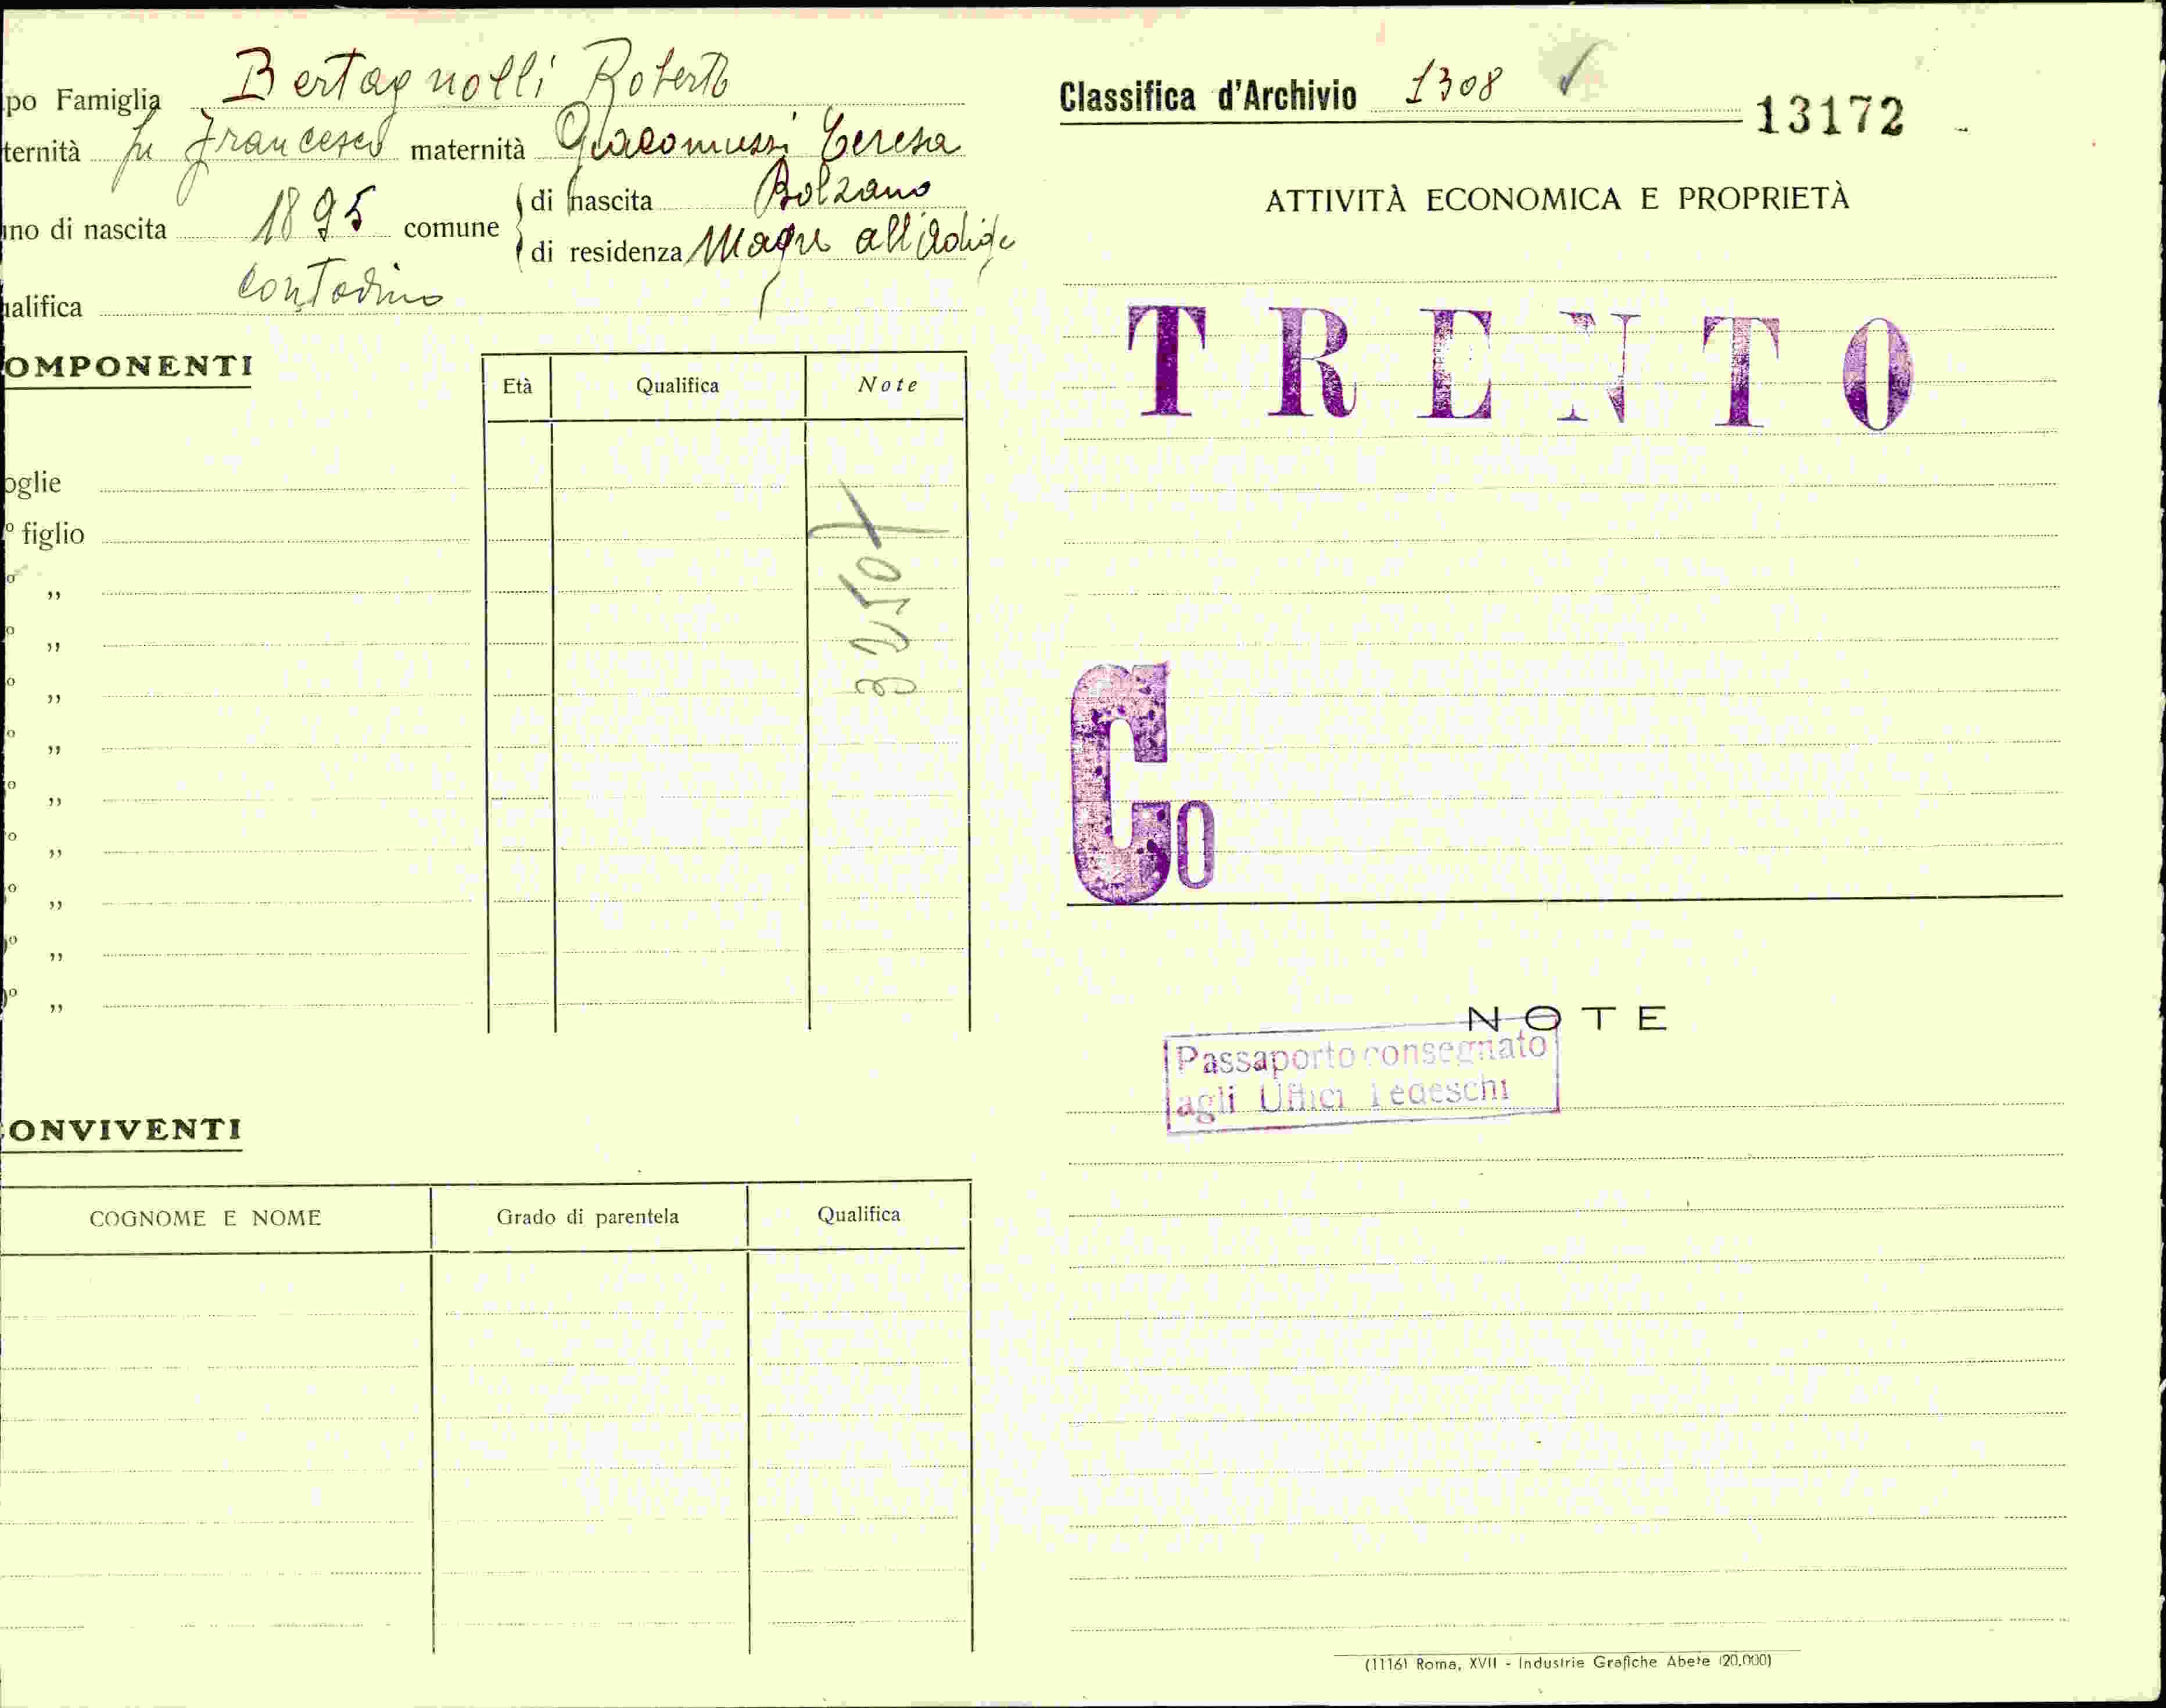 po Famiglia Bertagnolli Roberto
ternità fu Francesco maternità Giacomuzzi Teresa
no di nascita 1895 comune di nascita Bolzano
di residenza Magrè all'Adige
alifica contadino
OMPONENTI
Età Qualifica Note
oglie
º figlio
º „
º „
º „
º „
º „
º „
º „
º „
º „
3250
ONVIVENTI
COGNOME E NOME Grado di parentela Qualifica
Classifica d'Archivio 1308 ✓
13172
ATTIVITÀ ECONOMICA E PROPRIETÀ
TRENTO
Co
NOTE
Passaporto consegnato
agli Uffici Tedeschi
(1116) Roma, XVII - Industrie Grafiche Abete (20.000)